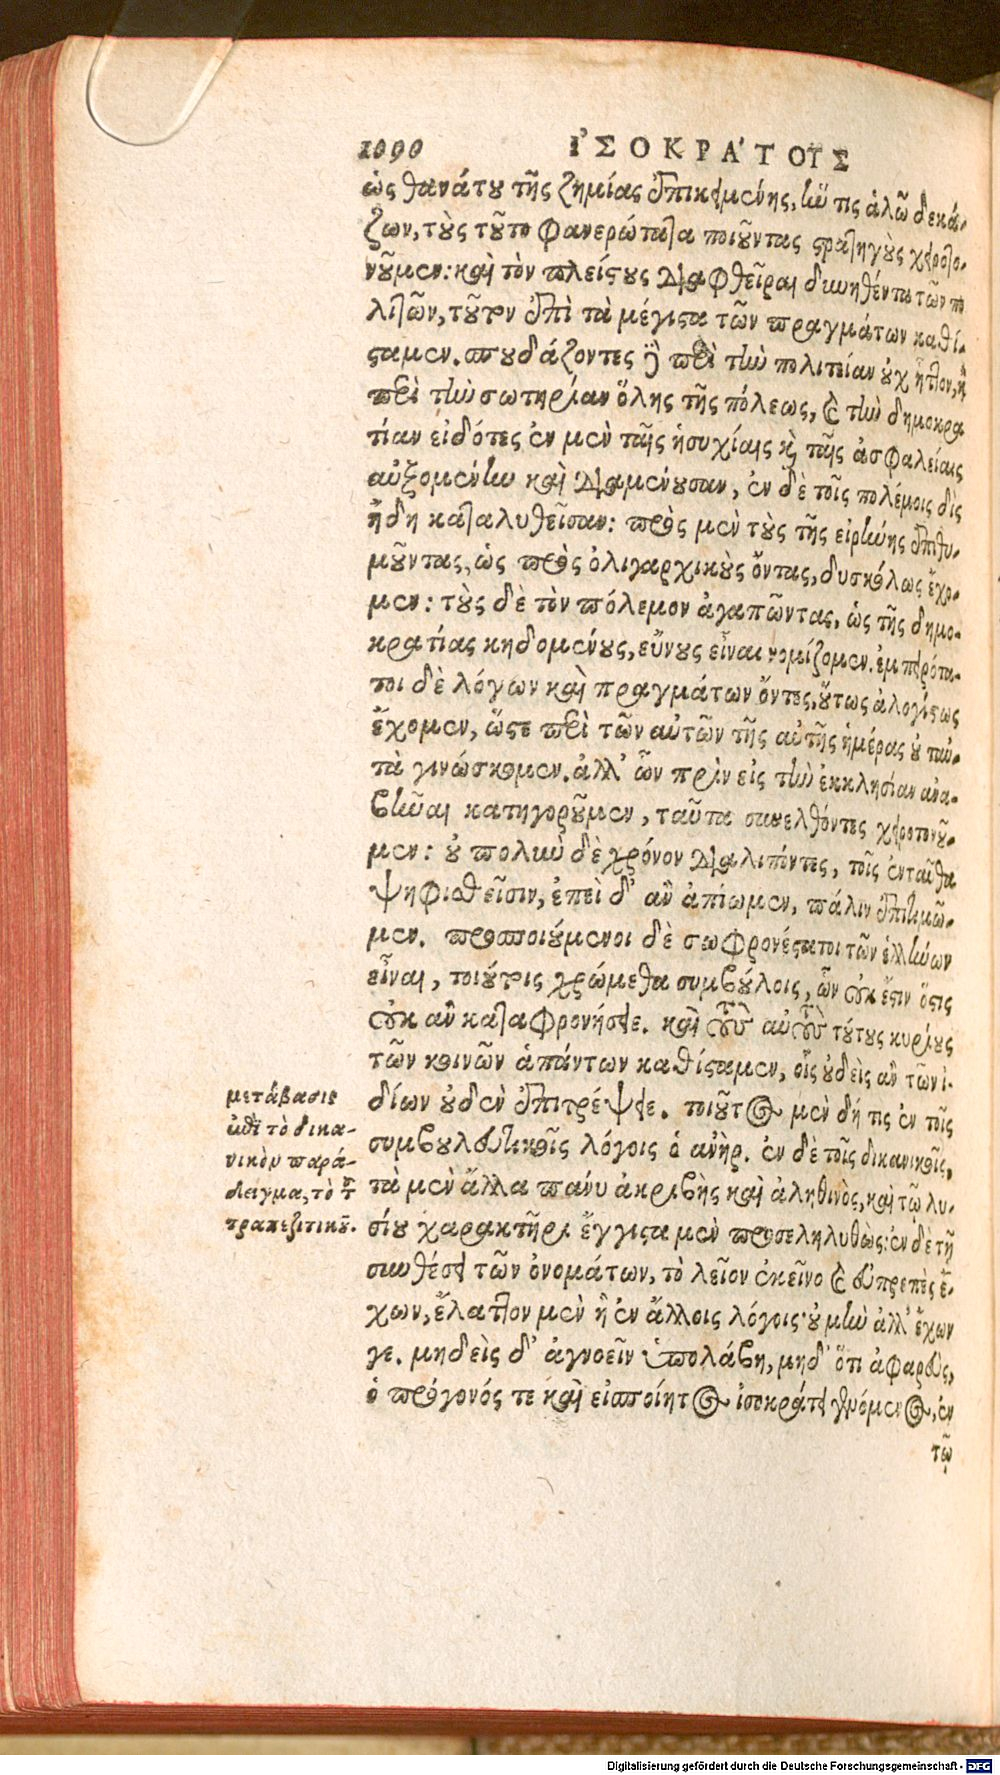 1090 ἸΣΟΚΡΆΤΟΥΣ
ὡς θανάτου τῆς ζημίας ἐπικειμένης, ἤν τις ἁλῷ δεκά-
ζων, τοὺς τοῦτο φανερώτατα ποιοῦντας στρατηγοὺς χειροτο-
νοῦμεν: καὶ τὸν πλείστους διαφθεῖραι δυνηθέντα τῶν πο
λιτῶν, τοῦτον ἐπὶ τὰ μέγιστα τῶν πραγμάτων καθί-
σταμεν. σπουδάζοντες δὲ περὶ τὴν πολιτείαν οὐχ ἧττον, ἢ
περὶ τὴν σωτηρίαν ὅλης τῆς πόλεως, καὶ τὴν δημοκρα
τίαν εἰδότες ἐν μὲν ταῖς ἡσυχίαις καὶ ταῖς ἀσφαλείαις
αὐξομένην καὶ διαμένουσαν, ἐν δὲ τοῖς πολέμοις δὶς
ἤδη καταλυθεῖσαν: πρὸς μὲν τοὺς τῆς εἰρήνης ἐπιθυ-
μοῦντας, ὡς πρὸς ὀλιγαρχικοὺς ὄντας, δυσκόλως ἔχο-
μεν: τοὺς δὲ τὸν πόλεμον ἀγαπῶντας, ὡς τῆς δημο-
κρατίας κηδομένους, εὔνους εἶναι νομίζομεν. ἐμπειρότα-
τοι δὲ λόγων καὶ πραγμάτων ὄντες, οὕτως ἀλογίστως
ἔχομεν, ὥστε περὶ τῶν αὐτῶν τῆς αὐτῆς ἡμέρας οὐ ταὐ-
τὰ γινώσκομεν. ἀλλ' ὧν πρὶν εἰς τὴν ἐκκλησίαν ἀνα-
βῆναι κατηγοροῦμεν, ταῦτα συνελθόντες χειροτονοῦ-
μεν: οὐ πολὺν δὲ χρόνον διαλιπόντες, τοῖς ἐνταῦθα
ψηφισθεῖσιν, ἐπεὶ δ' ἂν ἀπίωμεν, πάλιν ἐπιτιμῶ-
μεν. προσποιούμενοι δὲ σωφρονέστατοι τῶν ἑλλήνων
εἶναι, τοιούτοις χρώμεθα συμβούλοις, ὧν οὐκ ἔστιν ὅστις
οὐκ ἂν καταφρονήσειε. καὶ τοὺς αὐτοὺς τούτους κυρίους
τῶν κοινῶν ἁπάντων καθίσταμεν, οἷς οὐδεὶς ἂν τῶν ἰ-
δίων οὐδὲν ἐπιτρέψειε. τοιοῦτος μὲν δή τις ἐν τοῖς
συμβουλευτικοῖς λόγοις ὁ ἀνήρ. ἐν δὲ τοῖς δικανικοῖς,
τὰ μὲν ἄλλα πάνυ ἀκριβὴς καὶ ἀληθινὸς, καὶ τῷ λυ-
σίου χαρακτῆρι ἔγγιστα μὲν προσεληλυθὼς: ἐν δὲ τῇ
συνθέσει τῶν ὀνομάτων, τὸ λεῖον ἐκεῖνο καὶ εὐπρεπὲς ἔ-
χων, ἔλαττον μὲν ἢ ἐν ἄλλοις λόγοις· οὐ μὴν ἀλλ' ἔχων
γε. μηδεὶς δ' ἀγνοεῖν ὑπολάβῃ, μηδ' ὅτι ἀφαρεὺς,
ὁ πρόγονός τε καὶ εἰσποίητος ἰσοκράτει γενόμενος, ἐν
τῷ
μετάβασις
ἐπὶ τὸ δικα-
νικὸν παρά-
δειγμα, τὸ τοῦ
τραπεζιτικοῦ.
Digitalisierung gefördert durch die Deutsche Forschungsgemeinschaft - DFG